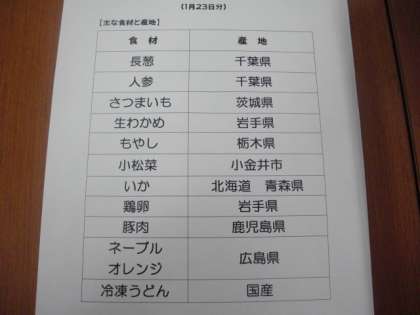 (1月23日分)
【主な食材と産地】
食材 産地
長葱 千葉県
人参 千葉県
さつまいも 茨城県
生わかめ 岩手県
もやし 栃木県
小松菜 小金井市
いか 北海道 青森県
鶏卵 岩手県
豚肉 鹿児島県
ネーブル
オレンジ 広島県
冷凍うどん 国産